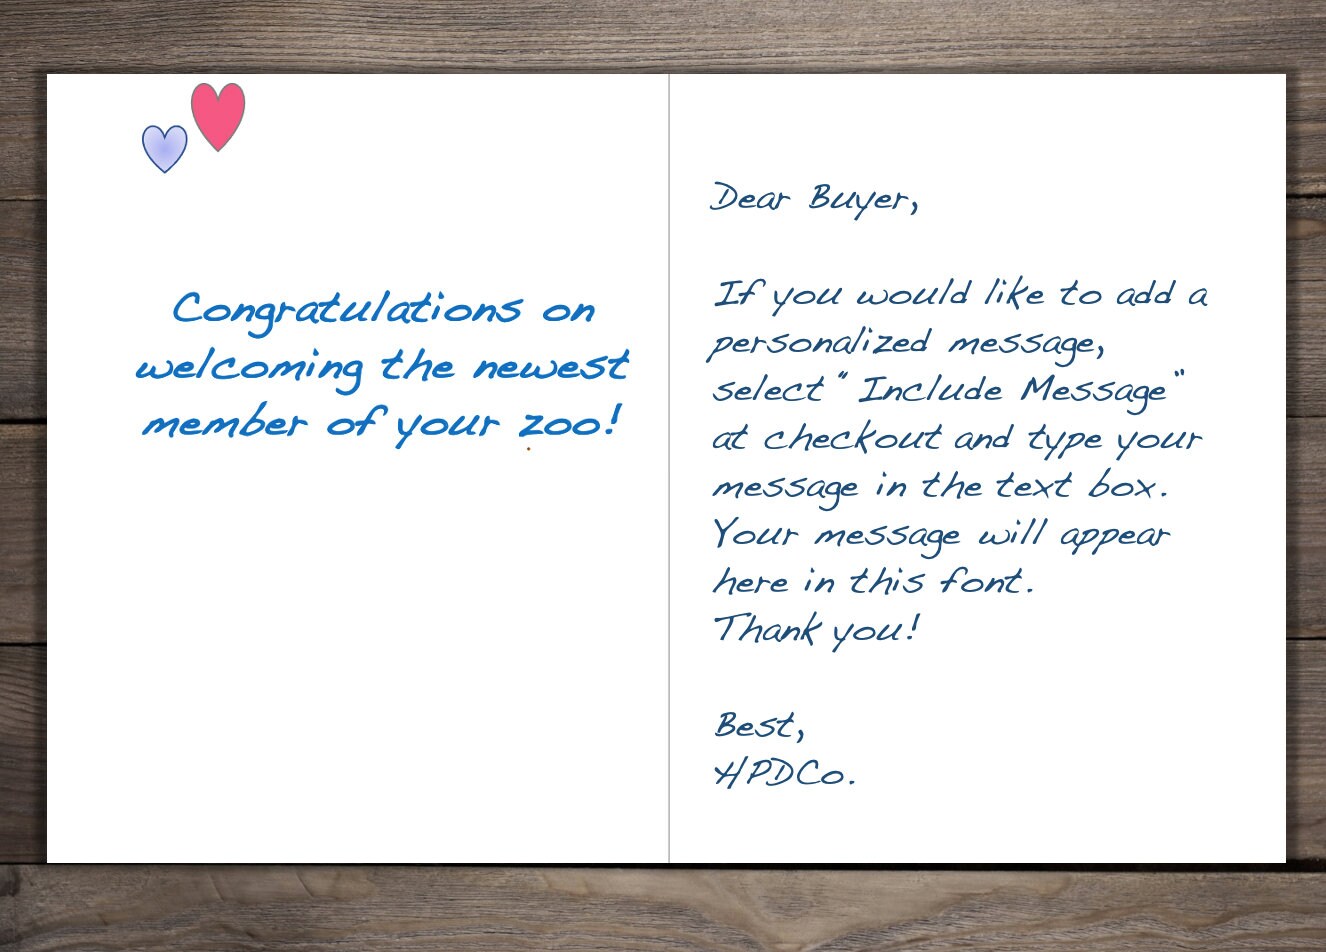 Congratulations on
welcoming the newest
member of your zoo!
Dear Buyer,
If you would like to add a
personalized message,
select "Include Message"
at checkout and type your
message in the text box.
Your message will appear
here in this font.
Thank you!
Best,
HPDCo.